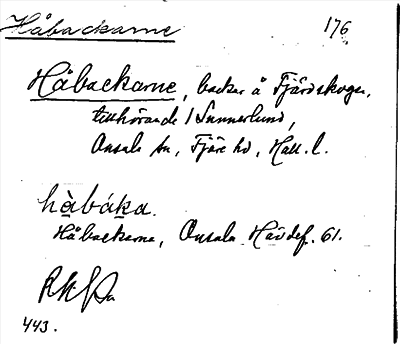 Håbackarne
176
Håbackarne, backar å Fjärdskogen,
tillhörande 1 Sunnerlund,
Onsala sn, Fjäre hd, Hall. l.
hàbáka.
Håbackarna, Onsala Hävdef. 61.
443.